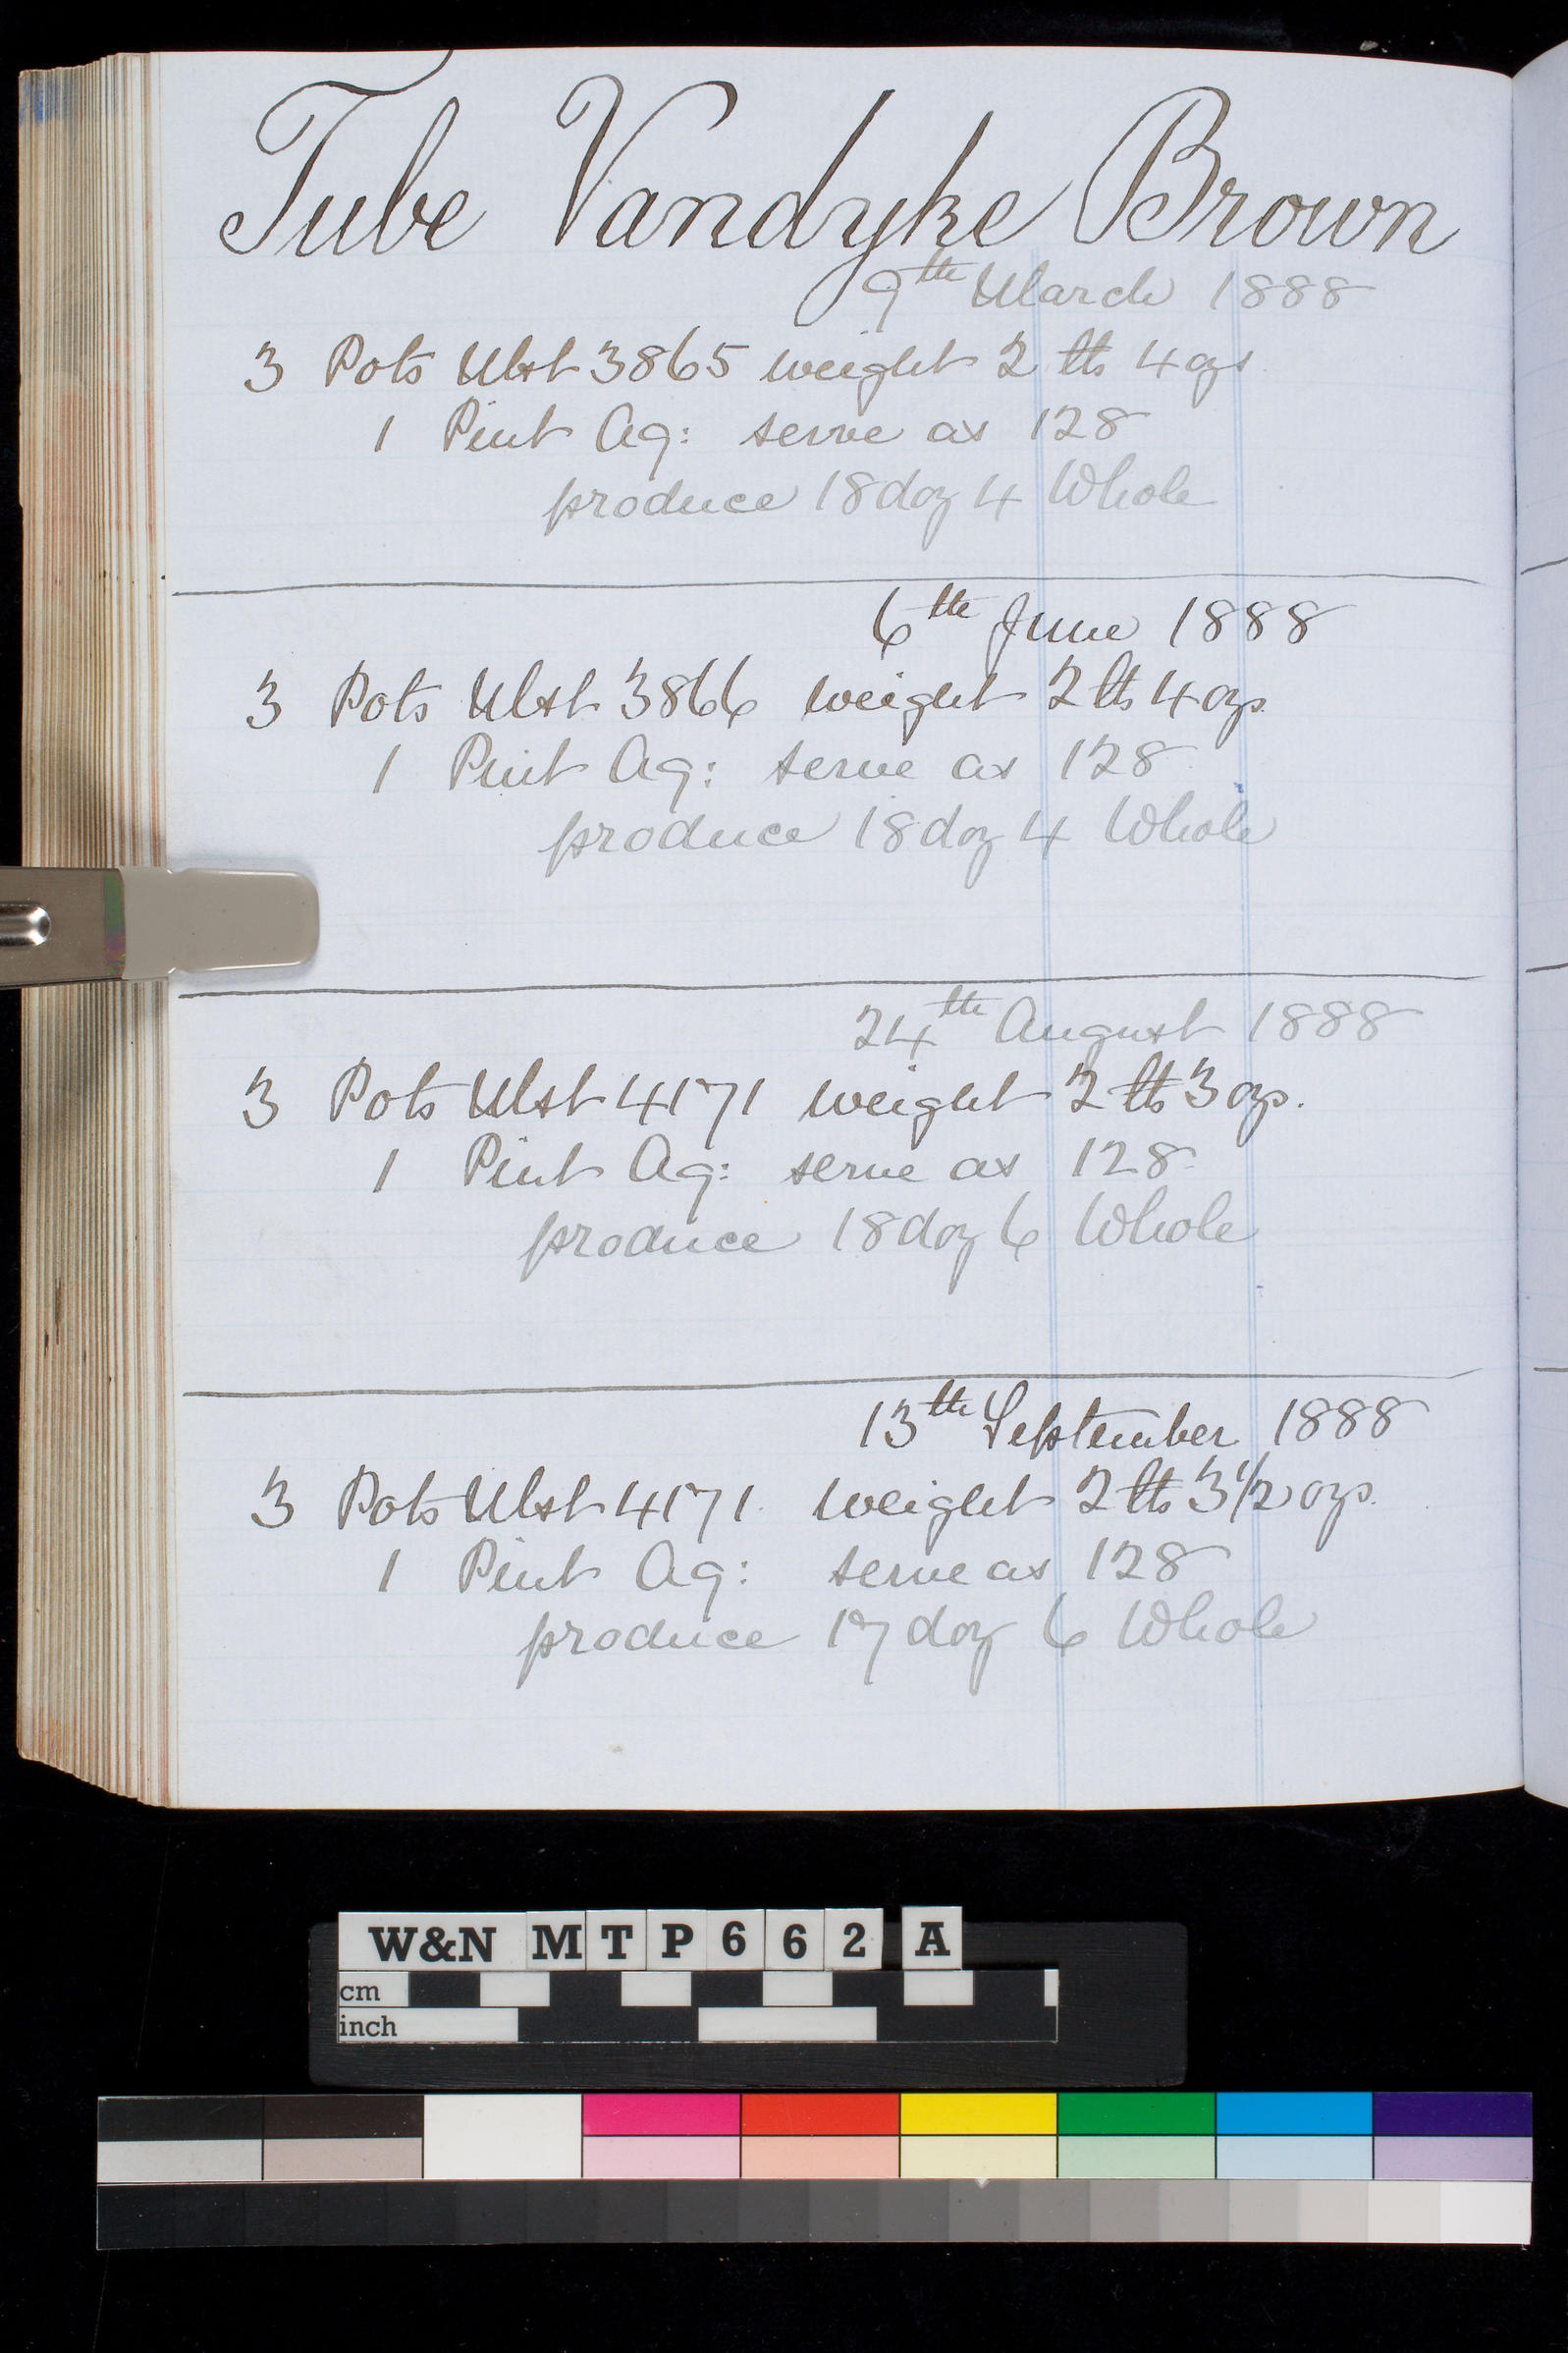 Tube Vandyke Brown
9th March 1888
3 Pots Ulst 3865 weight 2 lb 4 ozs
1 Pint Aq: serve as 128
produce 18 doz 4 Whole
6th June 1888
3 Pots Ulst 3866 weight 2 lb 4 ozs
1 Pint Aq: serve as 128
produce 18 doz 4 Whole
24th August 1888
3 Pots Ulst 4171 weight 2 lb 3 ozs.
1 Pint Aq: serve as 128
produce 18 doz 6 Whole
13th September 1888
3 Pots Ulst 4171 weight 2 lb 3 1/2 ozs.
1 Pint Aq: serve as 128
produce 17 doz 6 Whole
W&N MTP662 A
cm
inch